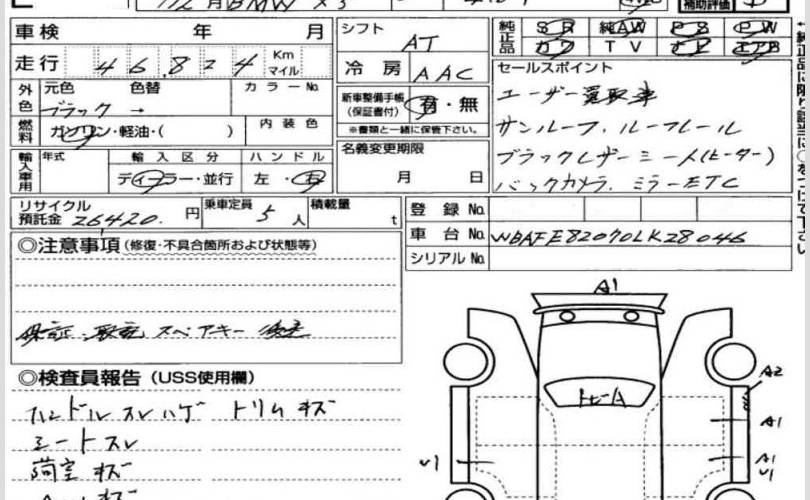 月BMW X3
補助評価
車検 年 月
走行 46,824 Km マイル
外色 元色 色替 カラーNo.
ブラック →
燃料 ガソリン・軽油・( ) 内装色
輸入車用 年式 輸入区分 ハンドル
ディーラー・並行 左・右
シフト AT
冷房 AAC
新車整備手帳(保証書付) 有・無
※書類と一緒に保管下さい。
名義変更期限
月 日
純正品 SR 純AW PS PW
カワ TV ナビ エアB
セールスポイント
ユーザー買取車
サンルーフ、ルーフレール
ブラックレザーシート(ヒーター)
バックカメラ、ミラーETC
リサイクル預託金 26420. 円 乗車定員 5人 積載量 t
登録No.
車台No. WBAFE82070LK28046
シリアルNo.
◎注意事項(修復・不具合箇所および状態等)
保証・取説 スペアキー 後送
◎検査員報告(USS使用欄)
ハンドル スレハゲ トリム キズ
シート スレ
荷室 キズ
キズ
A1
A2
A1
A1
U1
U1